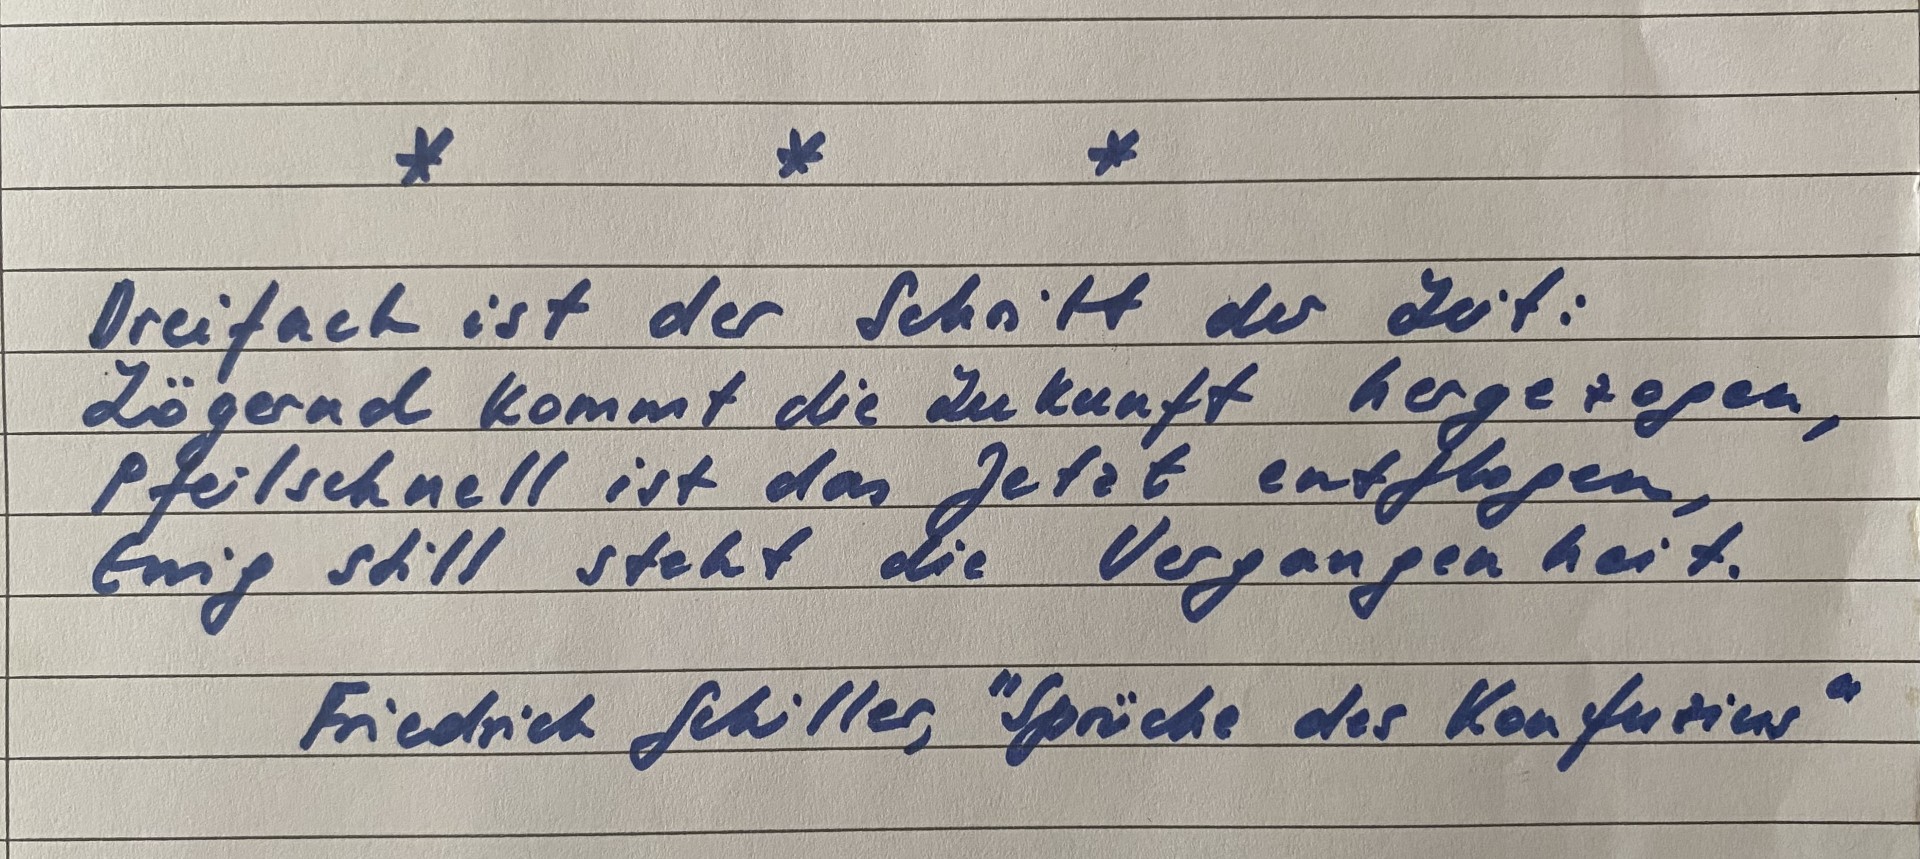 * * *
Dreifach ist der Schritt der Zeit:
Zögernd kommt die Zukunft hergezogen,
Pfeilschnell ist das Jetzt entflogen,
Ewig still steht die Vergangenheit.
Friedrich Schiller, "Sprüche des Konfuzius"